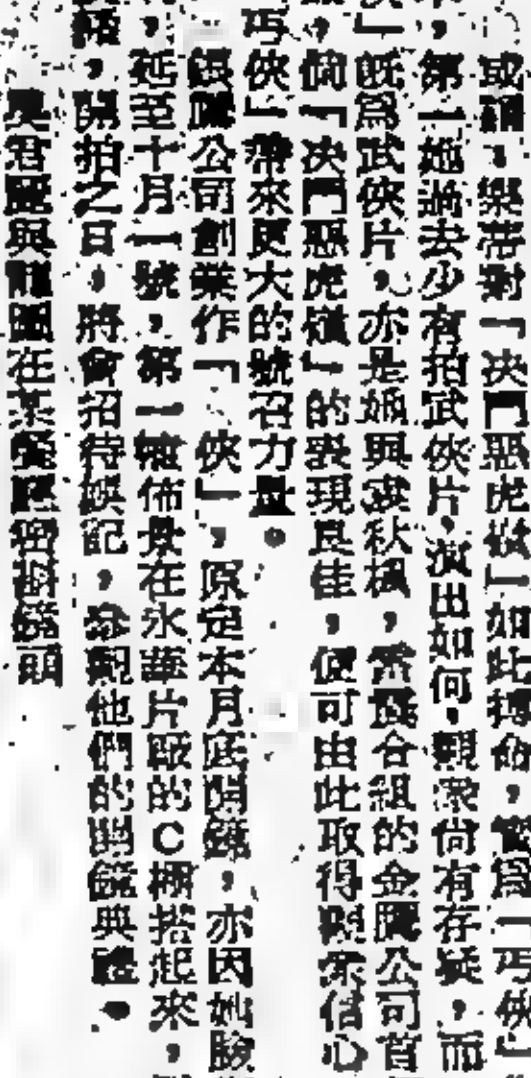 或謂，樂蒂對「決鬥惡虎嶺」如此搏命，實為「丐俠」
，第一她過去少有拍武俠片，演出如何，觀眾尚有存疑，而
俠」既為武俠片，亦是她與凌秋楓，雷震合組的金鷹公司首
，倘「決鬥惡虎嶺」的表現良佳，便可由此取得觀眾信心
丐俠」帶來更大的號召力量。
公司創業作「俠」，原定本月底開鏡，亦因她臉
，延至十月一號，第一堂佈景在永華片廠的C棚搭起來，
，開拍之日，將會招待娛記，參觀他們的開鏡典禮。
君麗與在某餐廳密斟鏡頭